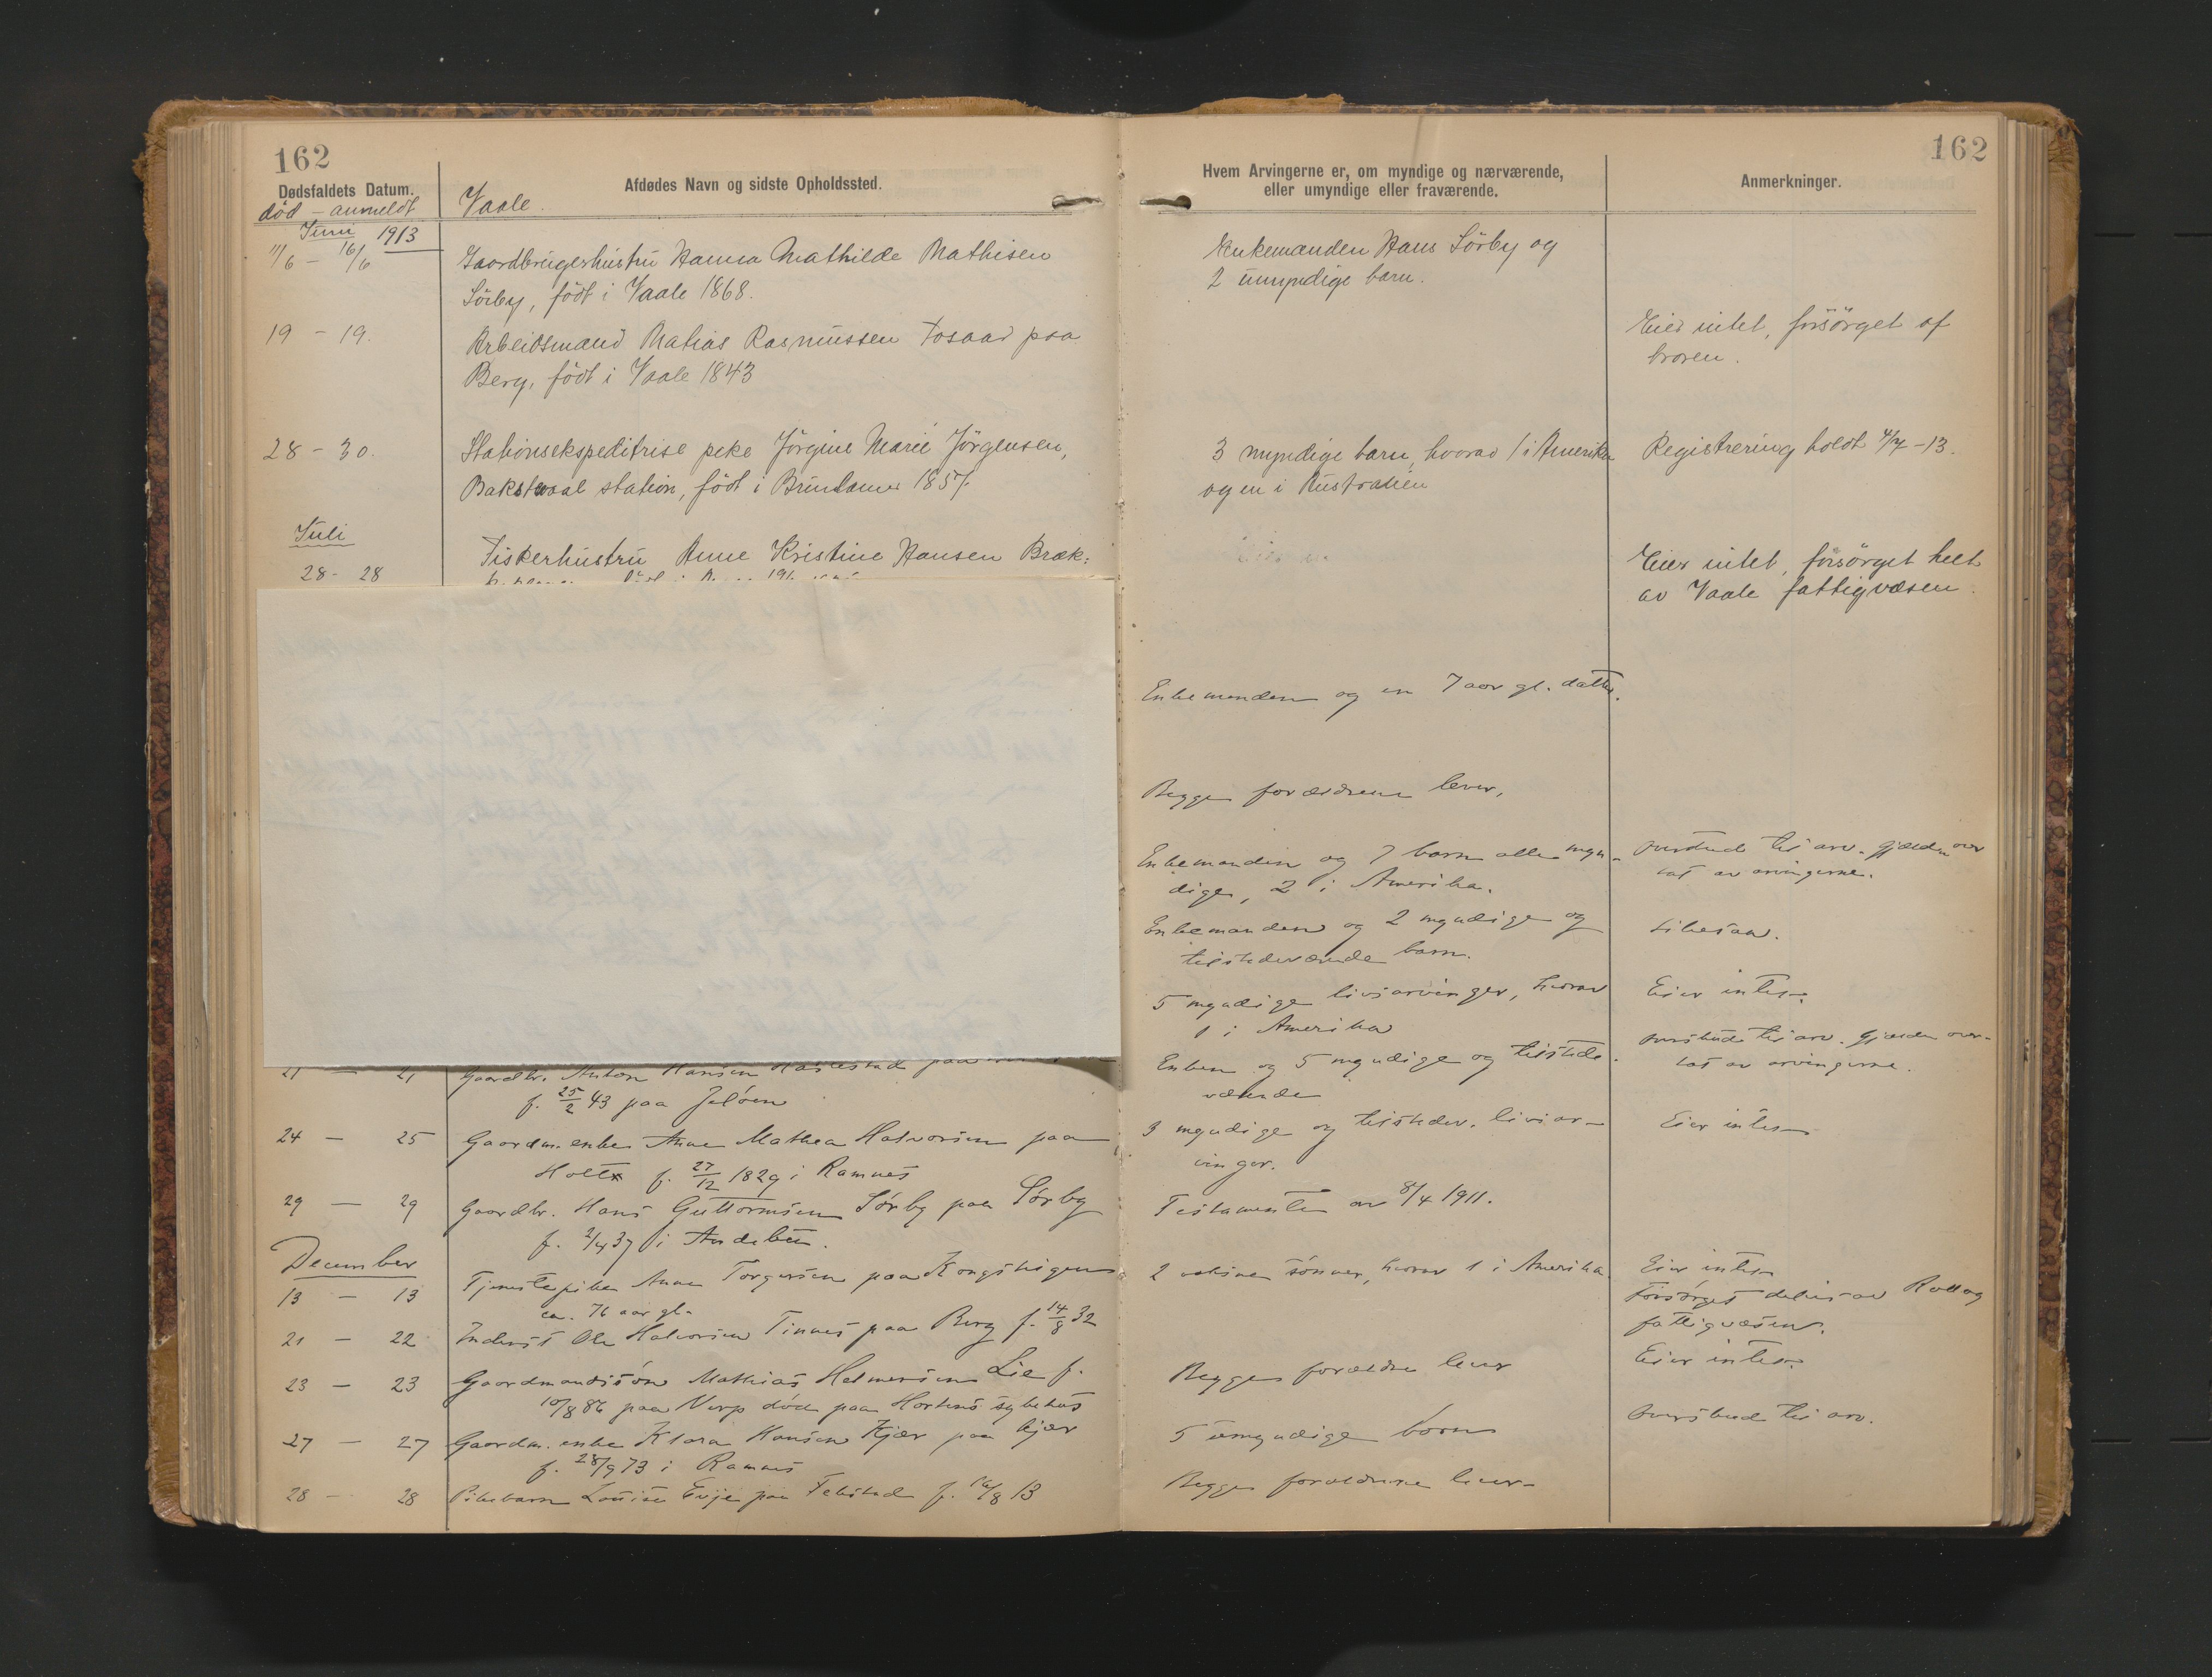 162
Dødsfaldets Datum.
død - anmeldt
Afdødes Navn og sidste Opholdssted.
Vaale.
Juni 1913
11/6 - 16/6
Gaardbrugerhustru Hanna Mathilde Mathisen
Sörby, födt i Vaale 1868.
19 - 19.
Arbeidsmand Matias Rasmussen Fosaas paa
Berg, födt i Vaale 1843
28 - 30.
Stationsekspeditrise Jörgine Marie Jörgensen,
station, födt i 1857.
Juli
28 - 28
Fiskerhustru Anne Kristine Hansen Bræk:
21 - 21
Gaardbr. Anton Hansen paa
f. 25/2 43 paa Jeløen
24 - 25
Gaardm. enke Anne Mathea Halvorsen paa
Holt f. 27/12 1829 i Ramnes
29 - 29
Gaardbr. Hans Guttormsen Sørby paa Sørby
f. 2/4 37 i Andebu.
December
13 - 13
Tjenestepike Anne Torgersen paa
ca. 76 aar gl.
21 - 22
Inderst Ole Halvorsen Tinnes paa Berg f. 14/8 32
23 - 23
Gaardmandssøn Mathias Helmersen Lie f.
10/8 86 paa død paa Hortens sykehus
27 - 27
Gaardm. enke Klara Hansen Kjær paa Kjær
f. 28/9 73 i Ramnes
28 - 28
Pikebarn Louise Evje paa f. 16/8 13
162
Hvem Arvingerne er, om myndige og nærværende,
eller umyndige eller fraværende.
Anmerkninger.
Enkemanden Hans Sörby og
2 umyndige barn.
Eier intet, forsörget af
broren.
3 myndige barn, hvorav 1 i Amerika
og en i Australien
Registrering holdt 4/7 - 13.
Eier intet, forsörget helt
av Vaale fattigvæsen.
Enkemanden og en 7 aar gl. datter.
Begge forældrene lever.
Enkemanden og 7 barn alle myn-
dige, 2 i Amerika.
overskud til arv. Gjælden over
tat av arvingerne.
Enkemanden og 2 myndige og
tilstedeværende barn.
Likesaa.
5 myndige livsarvinger, hvorav
1 i Amerika
Eier intet.
Enken og 5 myndige og tilstede-
værende
overskud til arv. Gjælden over-
tat av arvingerne.
3 myndige og tilstedev. livsar-
vinger.
Eier intet
Testamente av 8/4 1911.
2 voksne sønner, hvorav 1 i Amerika.
Eier intet
Forsørget delvis av
fattigvæsen.
Eier intet.
Begge forældre lever
5 umyndige børn
overskud til arv.
Begge forældrene lever